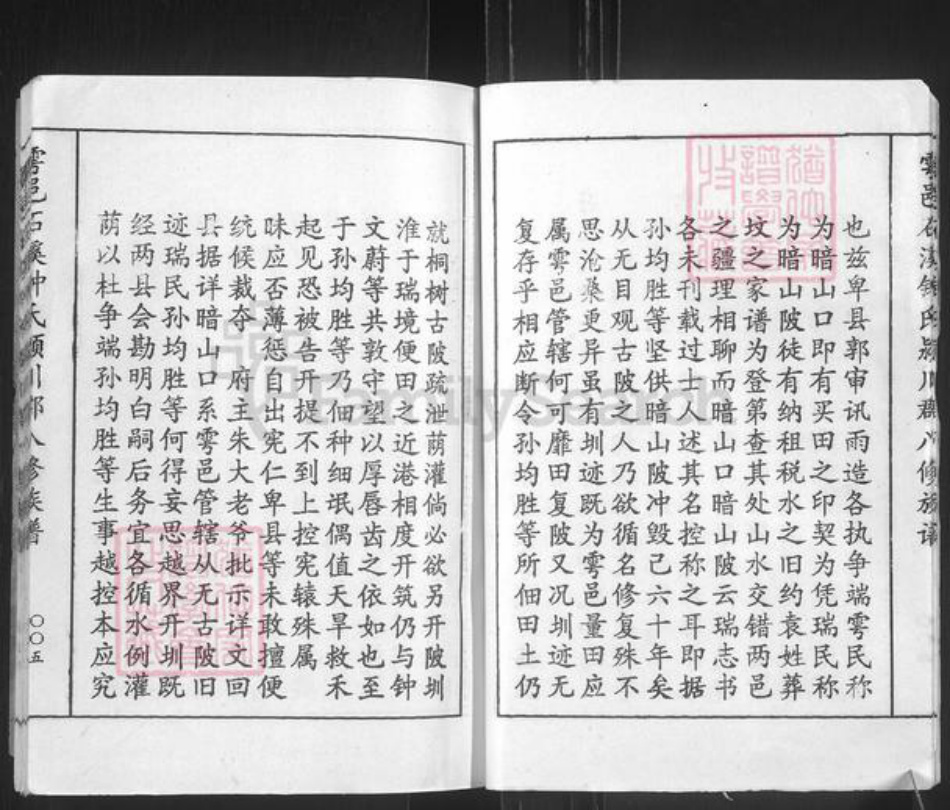 也兹卑县郭审讯雨造各执争端雩民称
为暗山口即有买田之印契为凭瑞民称
为暗山陂徒有纳租税水之旧约袁姓葬
坟之家谱为登第查其处山水交错两邑
之疆理相聊而暗山口暗山陂云瑞志书
各未刊载过士人述其名控称之耳即据
孙均胜等坚供暗山陂冲毁己六十年矣
从无目观古陂之人乃欲循名修复殊不
思沧桑更异虽有圳迹既为雩邑量田应
属雩邑管辖何可靡田复陂又况圳迹无
复存乎相应断令孙均胜等所佃田土仍
就桐树古陂疏泄荫灌倘必欲另开陂圳
淮于瑞境便田之近港相度开筑仍与钟
文蔚等共敦守望以厚唇齿之依如也至
于孙均胜等乃佃种细氓偶值天旱救禾
起见恐被告开提不到上控宪辕殊属
昧应否薄惩自出宪仁卑县等未敢擅便
统候裁夺 府王朱大老爷批示详文回
县据详暗山口系雩邑管辖从无古陂旧
迹瑞民孙均胜等何得妄思越界开圳既
经两县会勘明白嗣后务宜各循水例灌
荫以杜争端孙均胜等生事越控本应究
雩邑石溪钟氏颍川郡八修族谱
〇〇五
FamilySearch